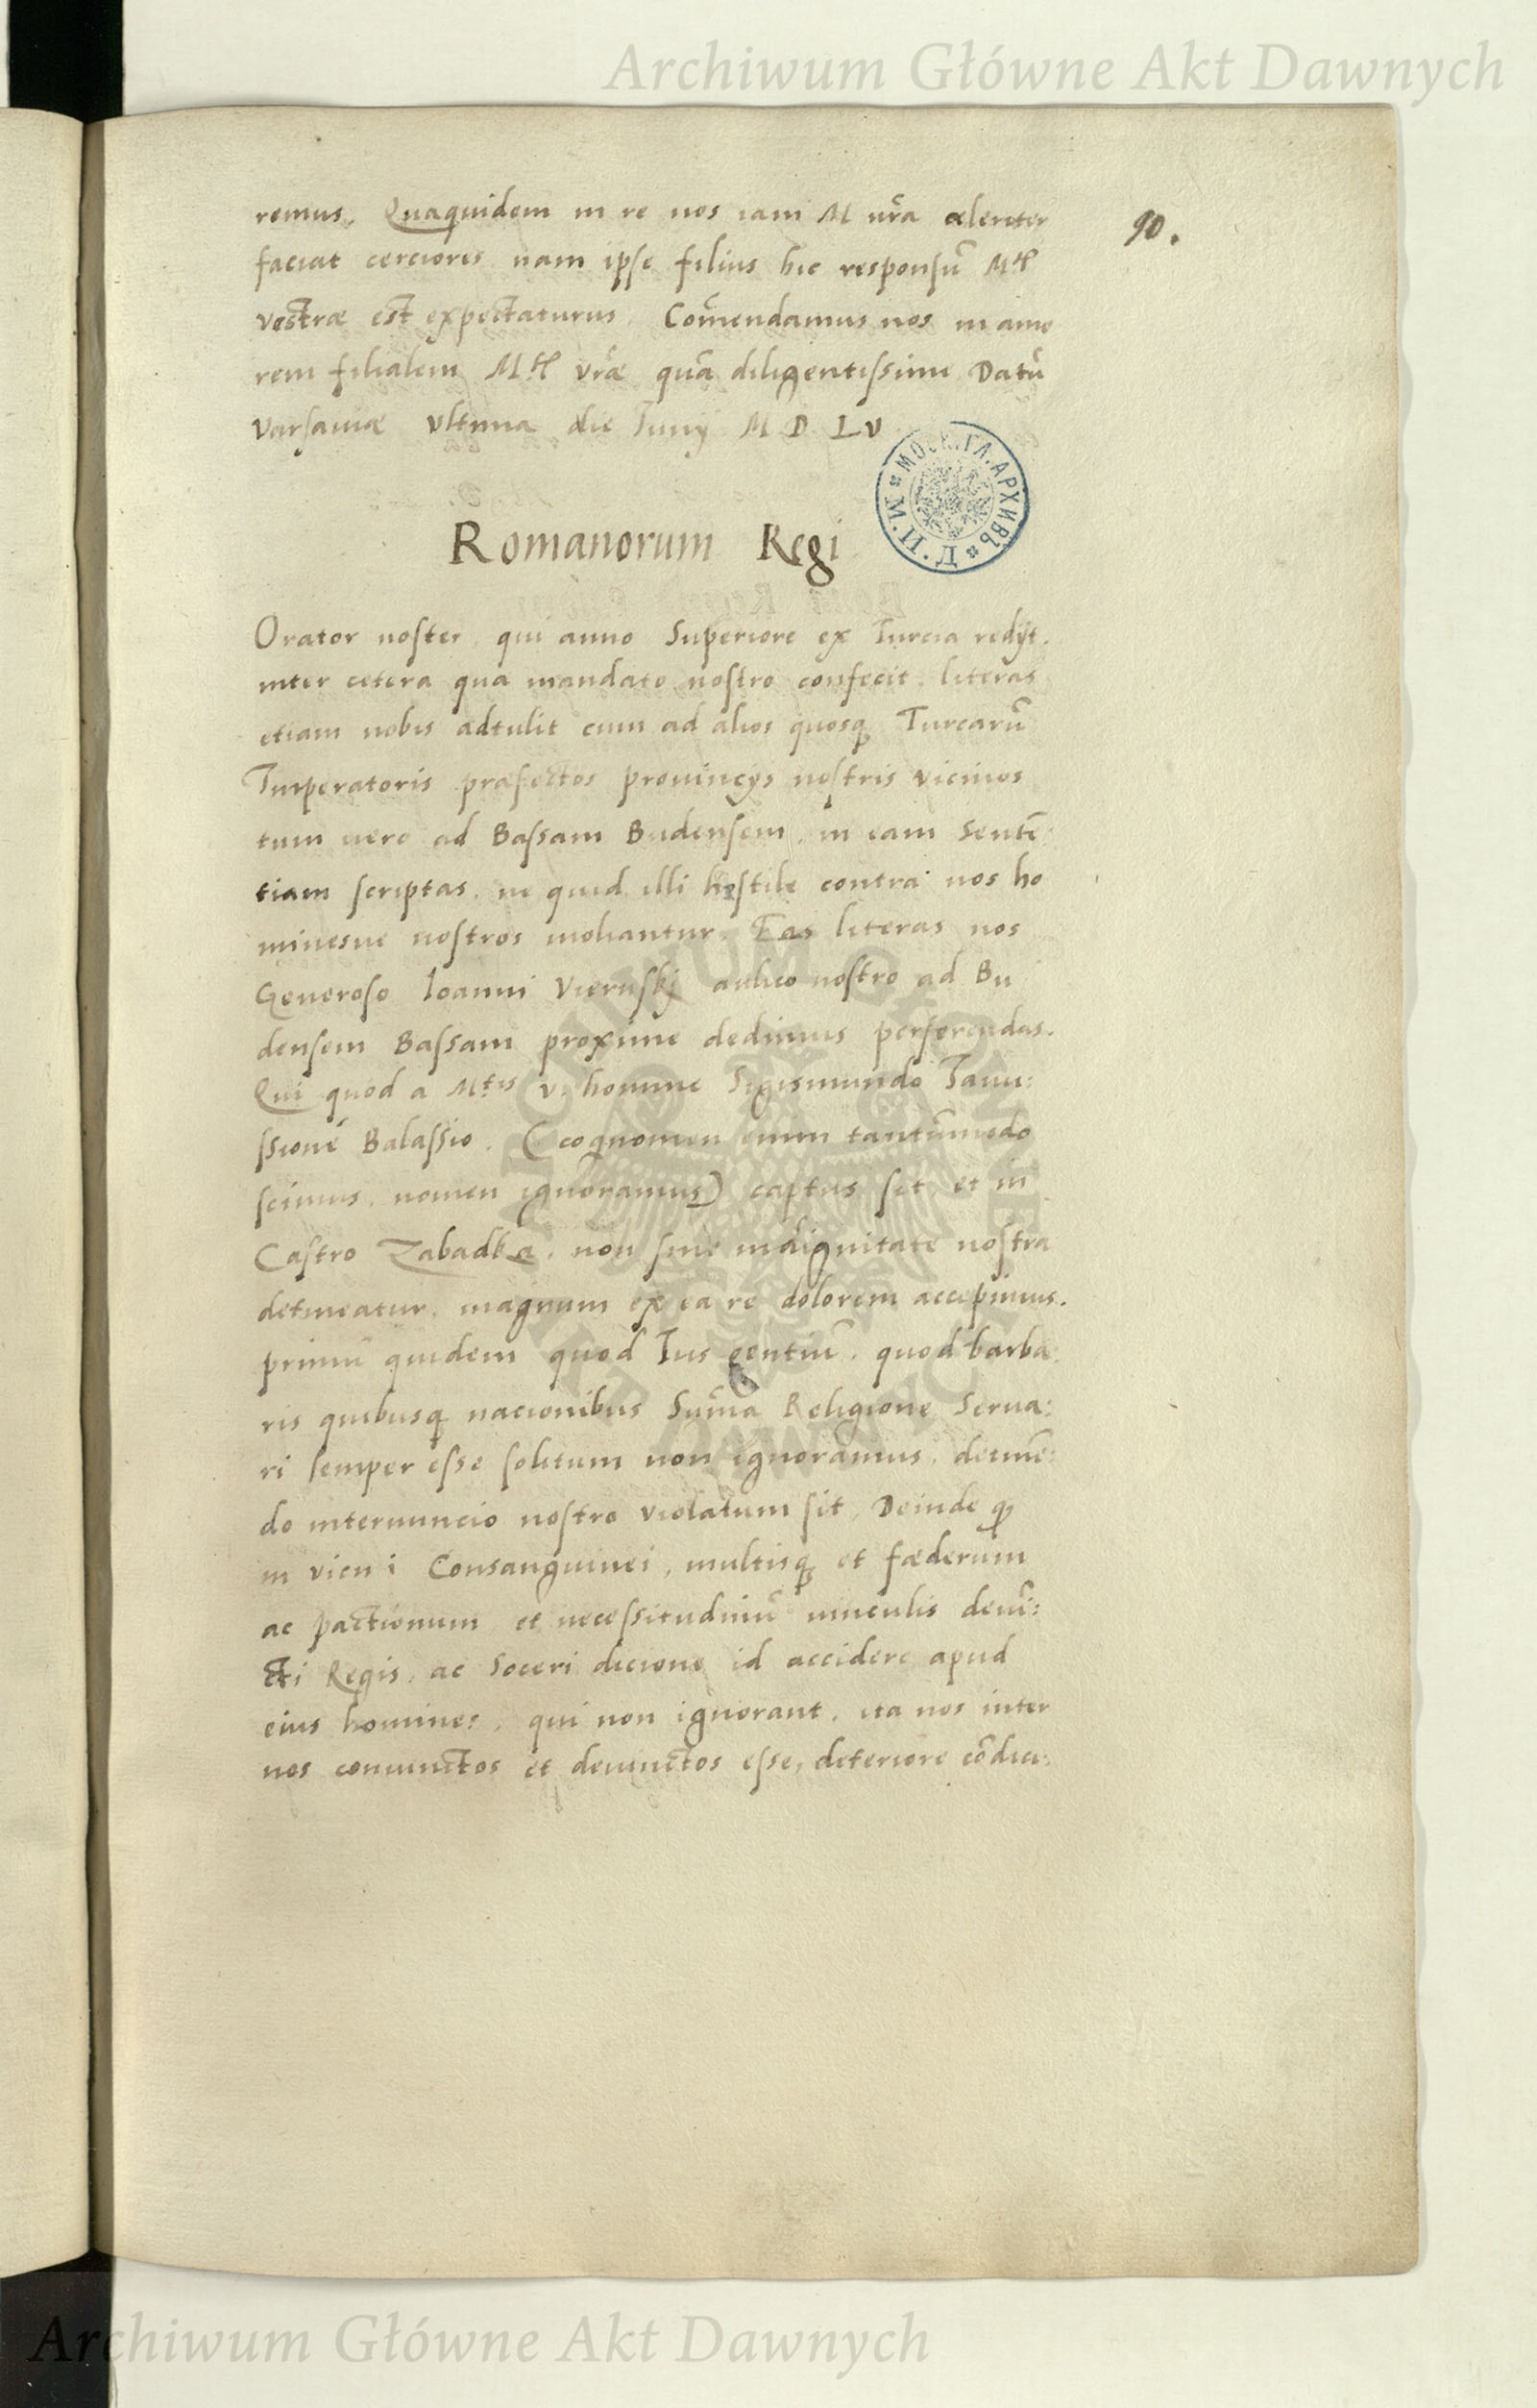 Archiwum Główne Akt Dawnych
90.
remus. Quaquidem in re nos iam M vr̃a celeriter
faciat cerciores nam ipse filius hic responsũ Mtis
vestræ est expectaturus. Com̃endamus nos in amo
rem filialem Mtis vr̃æ quã diligentissime Datũ
Varsaviæ vltima die Iunij M D LV
МОС. ГЛ. АРХИВЪ М. И. Д.
Romanorum Regi
Orator noster qui anno Superiore ex Turcia redijt.
inter cetera qua mandato nostro confecit literas
etiam nobis adtulit cum ad alios quosq Turcarũ
Imperatoris præfectos prouincijs nostris vicinos
tum vero ad Bassam Budensem, in eam Sentẽ:
tiam scriptas. ne quid illi hostile contra nos ho
minesue nostros moliantur. Eas literas nos
Generoso Ioanni Vierusskj aulico nostro ad Bu
densem Bassam proxime dedimus perferendas.
Qui quod a Mtis v. homine Sigismundo
Balassio. (cognomen enim tantũmodo
scimus. nomen ignoramus) captus sit et in
Castro Zabadka. non sine indignitate nostra
detineatur. magnum ex ea re dolorem accepimus.
primũ quidem quod Ius gentiũ. quod barba:
ris quibusq nacionibus Sum̃a Religione Serua:
ri semper esse solitum non ignoramus. detinẽ:
do internuncio nostro violatum sit, Deinde q
in vicini Consanguinei, multisq et fæderum
ac pactionum et necessitudinũ vinculis deuĩ:
cti Regis, ac Soceri dicione id accidere apud
eius homines, qui non ignorant. ita nos inter
nos coniunctos et deuinctos esse, deteriore cõdici:
Archiwum Główne Akt Dawnych